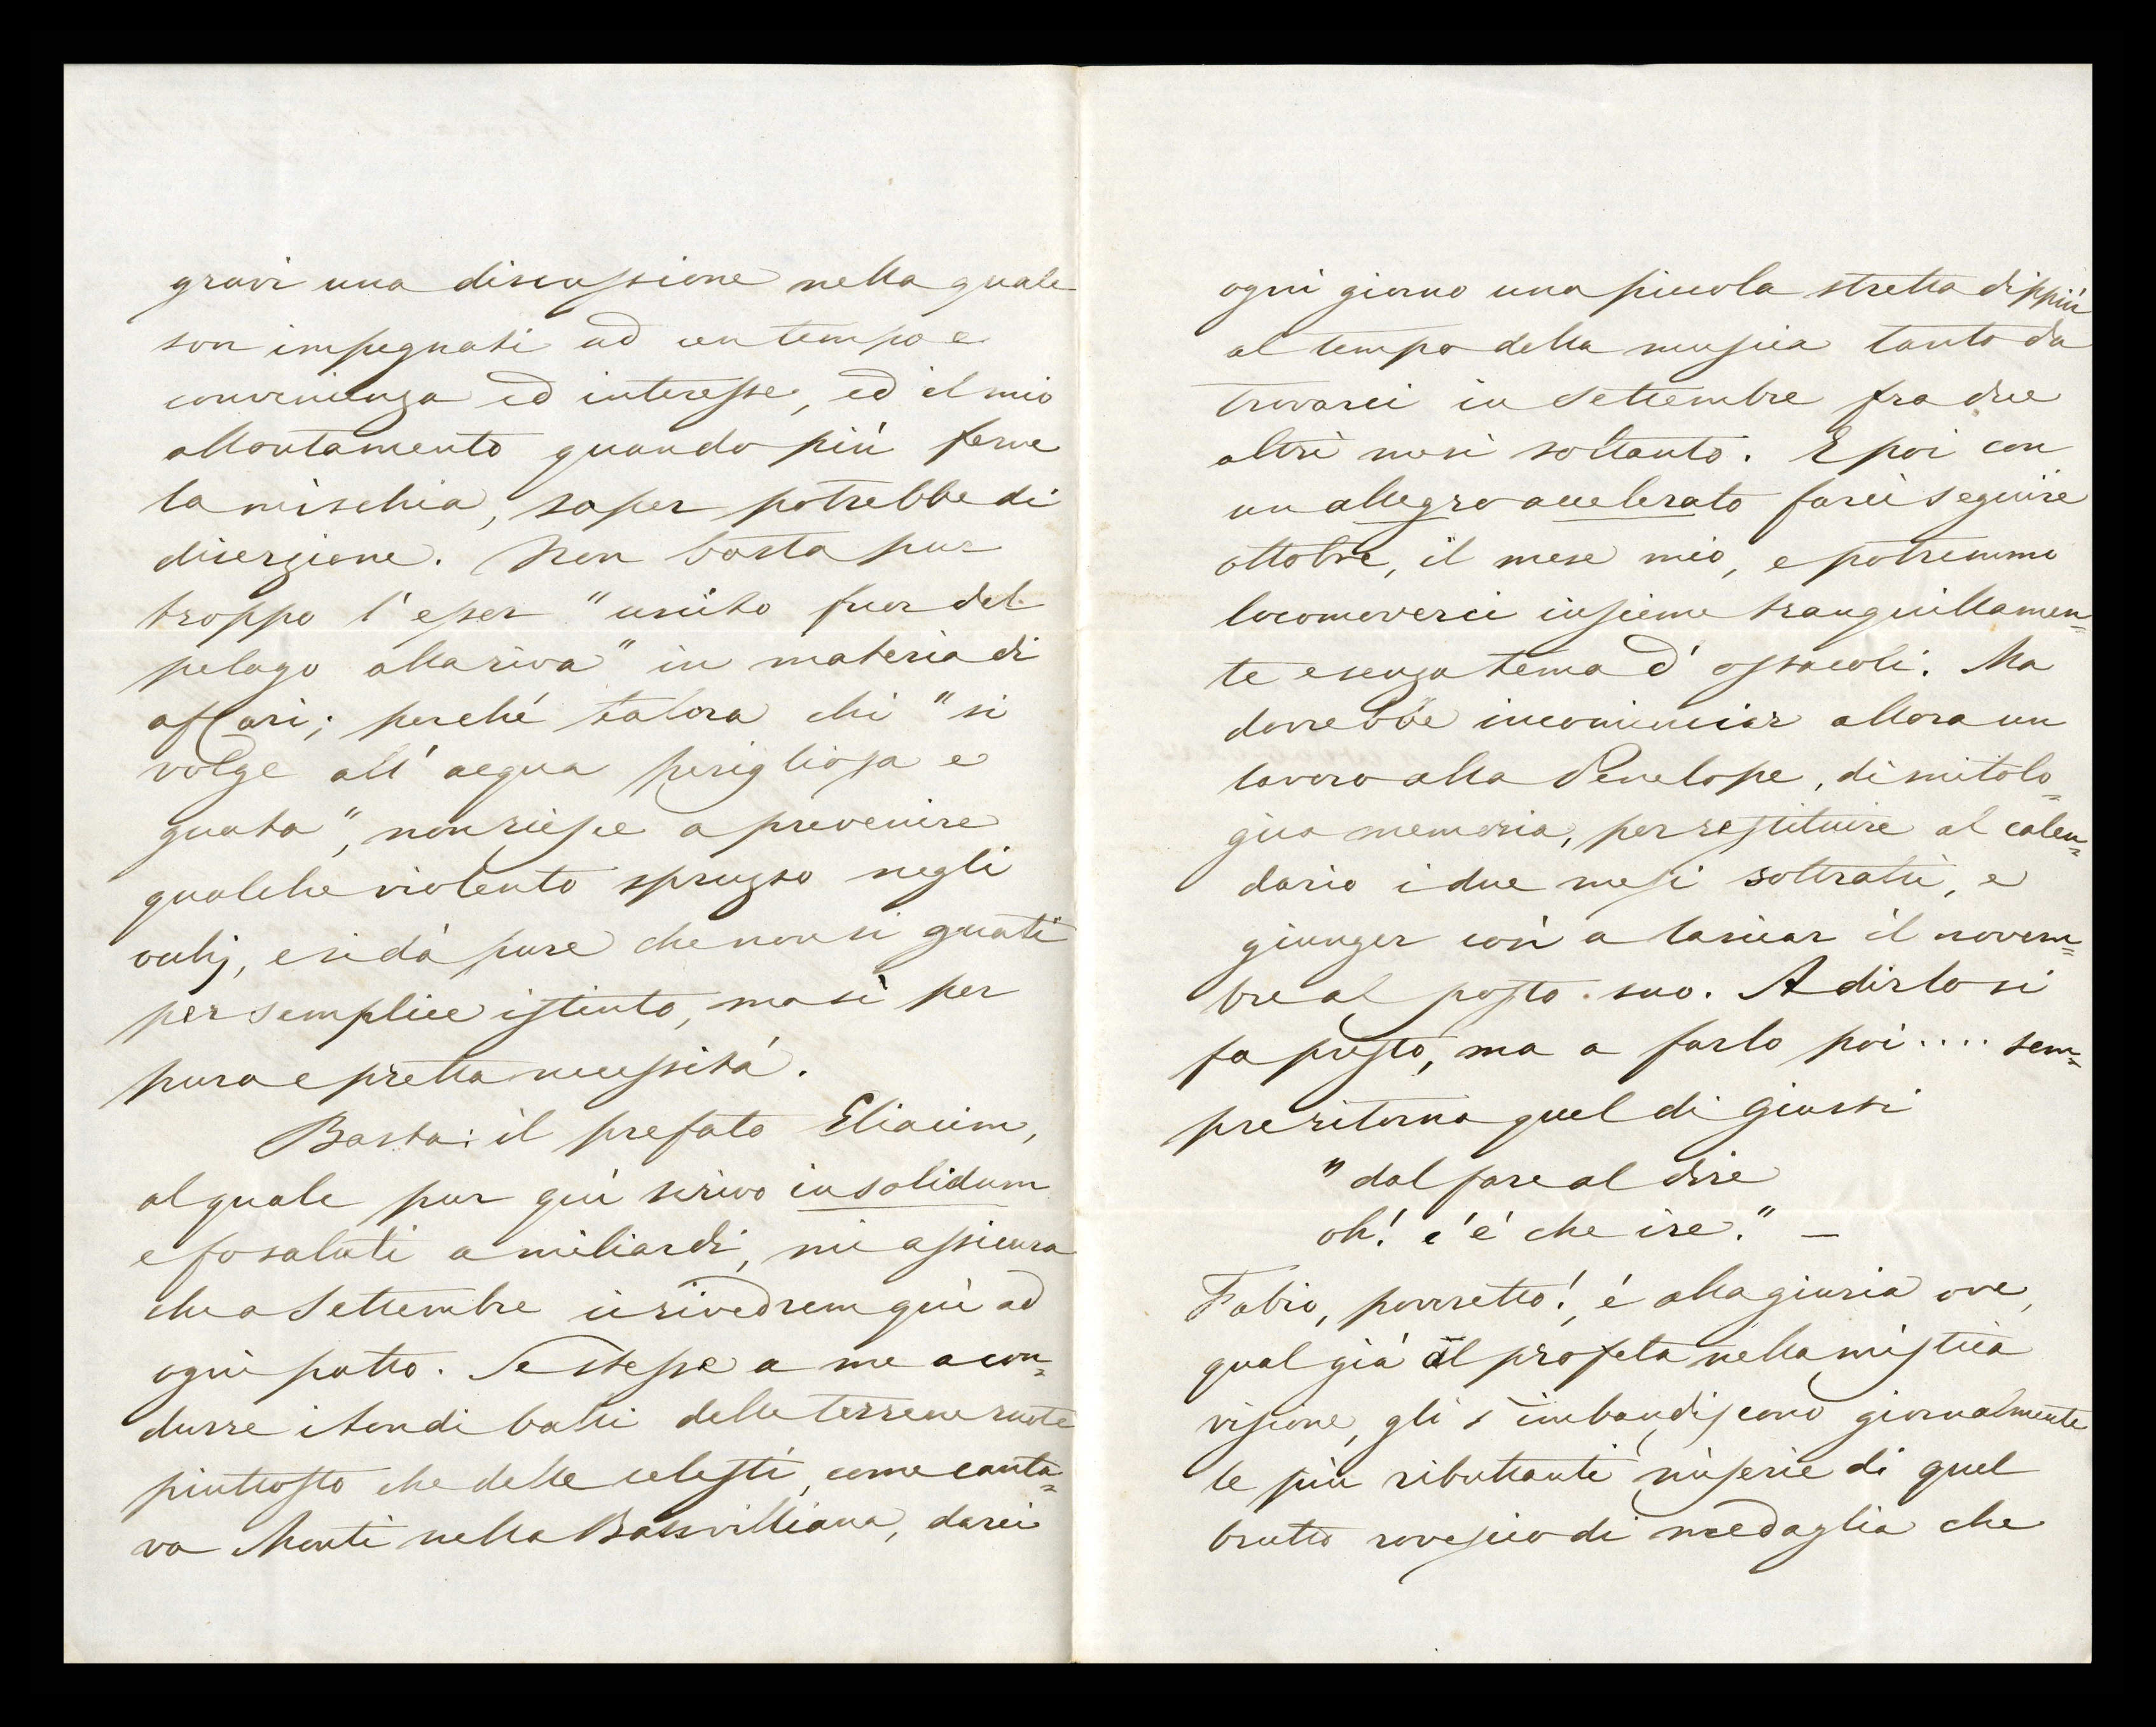 gravi una discussione nella quale
son impegnati ad un tempo e
convenienza ed interesse, ed il mio
allontamento quando più ferve
la mischia, saper potrebbe di
diserzione. Non basta pur
troppo l'esser "uscito fuor del
pelago alla riva" in materia di
affari; perché talora chi "si
volge all'acqua perigliosa e
guata", non riesce a prevenire
qualche violento spruzzo negli
occhj, e si dà pure che non si guati
per semplice istinto, ma sì per
pura e pretta necessità.
Basta: il prefato Eliacim,
al quale pur quì scrivo in solidum
e fo saluti a miliardi, mi assicura
che a Settembre ci rivedrem quì ad
ogni patto. Se stesse a me a con=
durre i tondi balli delle terrene ruote
piuttosto che delle celesti, come canta=
va Monti nella Bassvilliana, darei
ogni giorno una piccola stretta dippiù
al tempo della musica tanto da
trovarci in Settembre fra due
altri mesi soltanto. E poi con
un allegro accelerato farci seguire
ottobre, il mese mio, e potremmo
locomoverci insieme tranquillamen=
te e senza tema d'ostacoli. Ma
dovrebbe incominciar allora un
lavoro alla Penelope, di mitolo=
gica memoria, per restituire al calen=
dario i due mesi sottratti, e
giunger così a lasciar il novem=
bre al posto suo. A dirlo si
fa presto, ma a farlo poi.... sem=
pre ritorna quel di Giusti
"dal fare al dire
oh! c'é che ire." —
Fabio, poveretto!, é alla giuria ove,
qual già il profeta nella mistica
visione, gli s'imbandiscono giornalmente
le più ributtanti miserie di quel
brutto rovescio di medaglia che